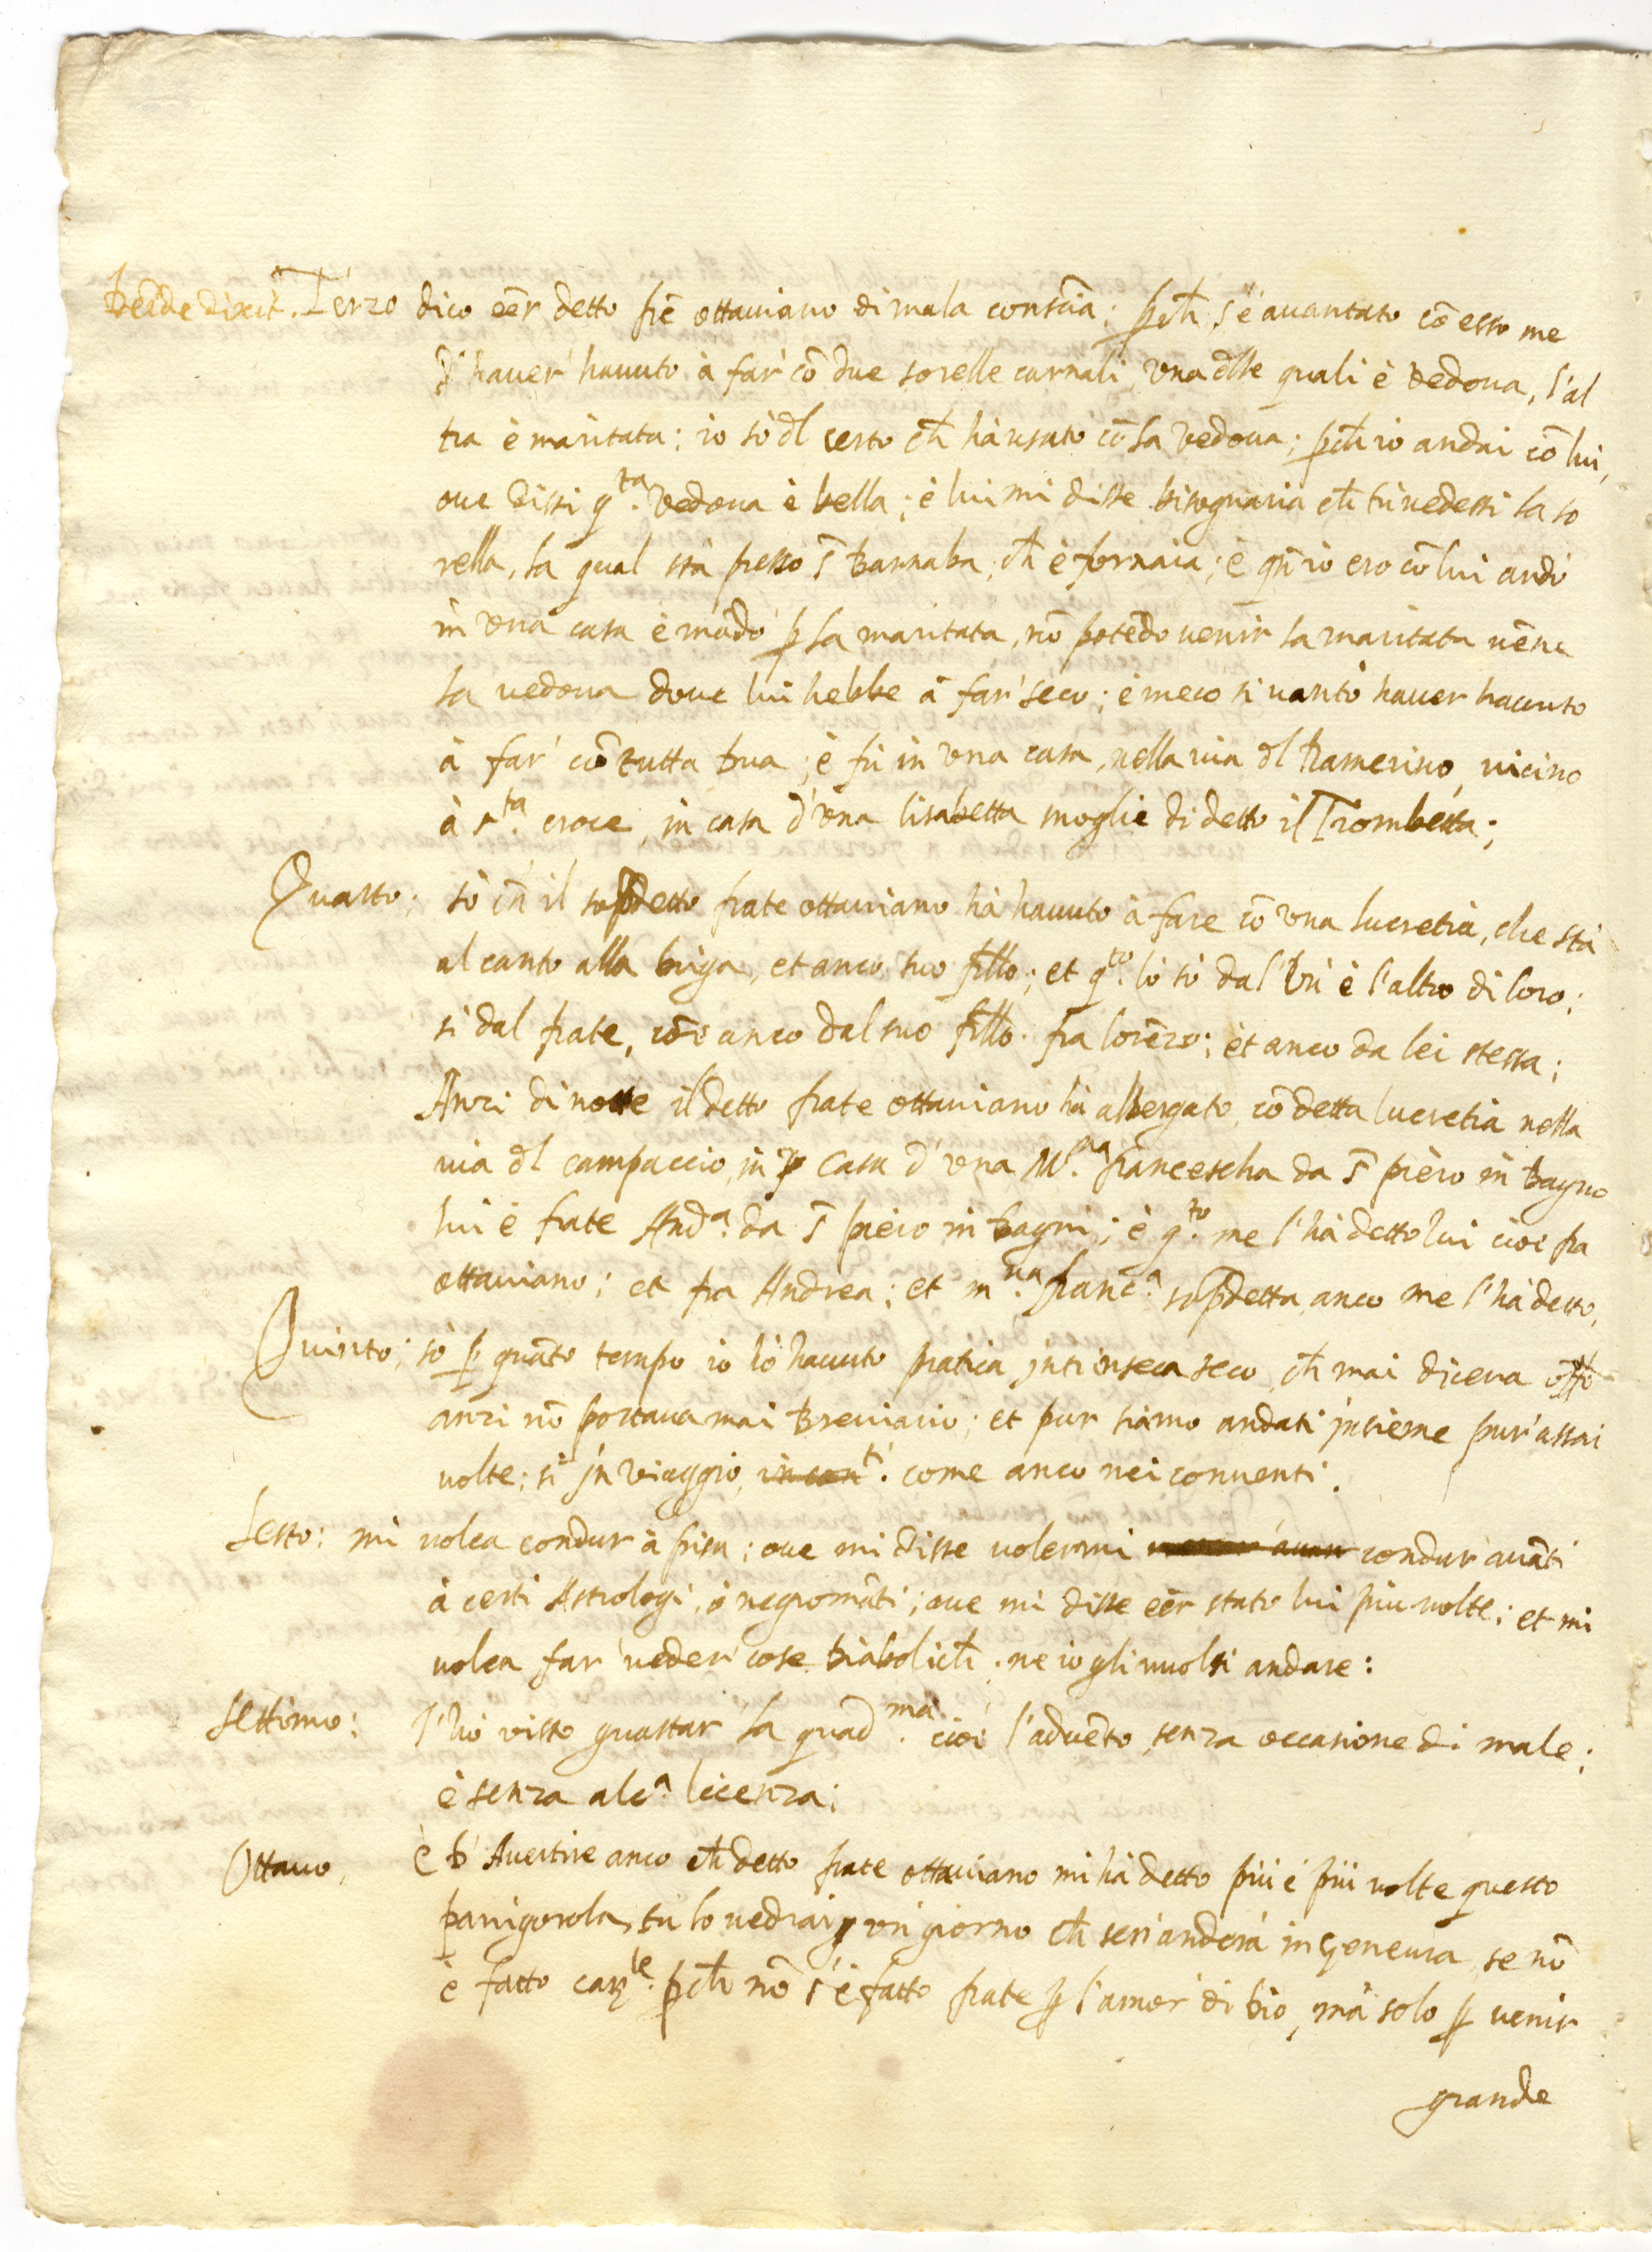 Deinde dixit. Terzo dico eēr detto frē ottauiano di mala consc̄ia; ꝑch̄ s'è auantato cō esso me
d'hauer' hauuto à far' cō due sorelle carnali, vna d̄lle quali è vedoua, l'al
tra è maritata: io sò d̄l certo ch̄ hà usato cō la vedoua; ꝑch̄ io andai cō lui,
oue dissi q.ta vedoua è bella; è lui mi disse bisognaria ch̄ tù uedessi la so
rella, la qual stà presso s̄ Barnaba, ch̄ è fornaia; è qn̄ io ero cō lui andò
in vna casa è mādò ꝑ la maritata, nō potēdo uenir la maritata uēne
la uedoua doue lui hebbe à far' seco; è meco si uantò hauer hauuto
à far' cō tutta dua; è fù in vna casa, nella uia d̄l Ramerino, vicino
à s.ta croce, in casa d'vna lisabetta moglie di detto il Trombetta;
Quarto; sò ch̄ il sop̄detto frate ottauiano hà hauuto à fare cō vna lucretia, che stà
al canto alla briga, et anco suo f̄llo; et q.to lo sò dal' vn' è l'altro di loro;
si dal frate, cōe anco dal suo f̄llo. fra lorēzo; et anco da lei stessa;
Anzi di notte il detto frate ottauiano hà albergato, cō detta lucretia nella
uia d̄l campaccio, in casa d'vna M.na francescha da s̄ pièro in bagno
lui è frate And.a da s̄ pièro in bagni; è q.to me l'hà detto lui cioè fra
ottauiano; et fra Andrea; et m.na franc.a sop̄detta, anco me l'hà detto,
Quinto; sò ꝑ quāto tempo io hò hauuto pratica intinseca seco, ch̄ mai diceua offō
anzi nō portaua mai Breuiario; et pur siamo andati insieme pur' assai
uolte; si in viaggio, in con.ti come anco nei conuenti.
Sesto: mi uolea condur à pisa; oue mi disse uolermi condur' auāti
à certi Astrologi, ò negromāti; oue mi disse eēr stato lui piu uolte; et mi
uolea far' ueder' cose diabolich̄. ne io gli uuolsi andare:
Settimo: l'hò visto guastar' la quad.ma cioè l'aduēto, senza occasione di male;
è senza alc.a licenza;
Ottauo, è d' Auertire anco ch̄ detto frate ottauiano mi hà detto più è più uolte questo
panigorola, tu lo uedrai un' giorno ch̄ sen' anderà in Geneura, se nō
è fatto car.le ꝑch̄ nō s'è fatto frate ꝑ l'amor' di dio, mà solo ꝑ uenir
grande